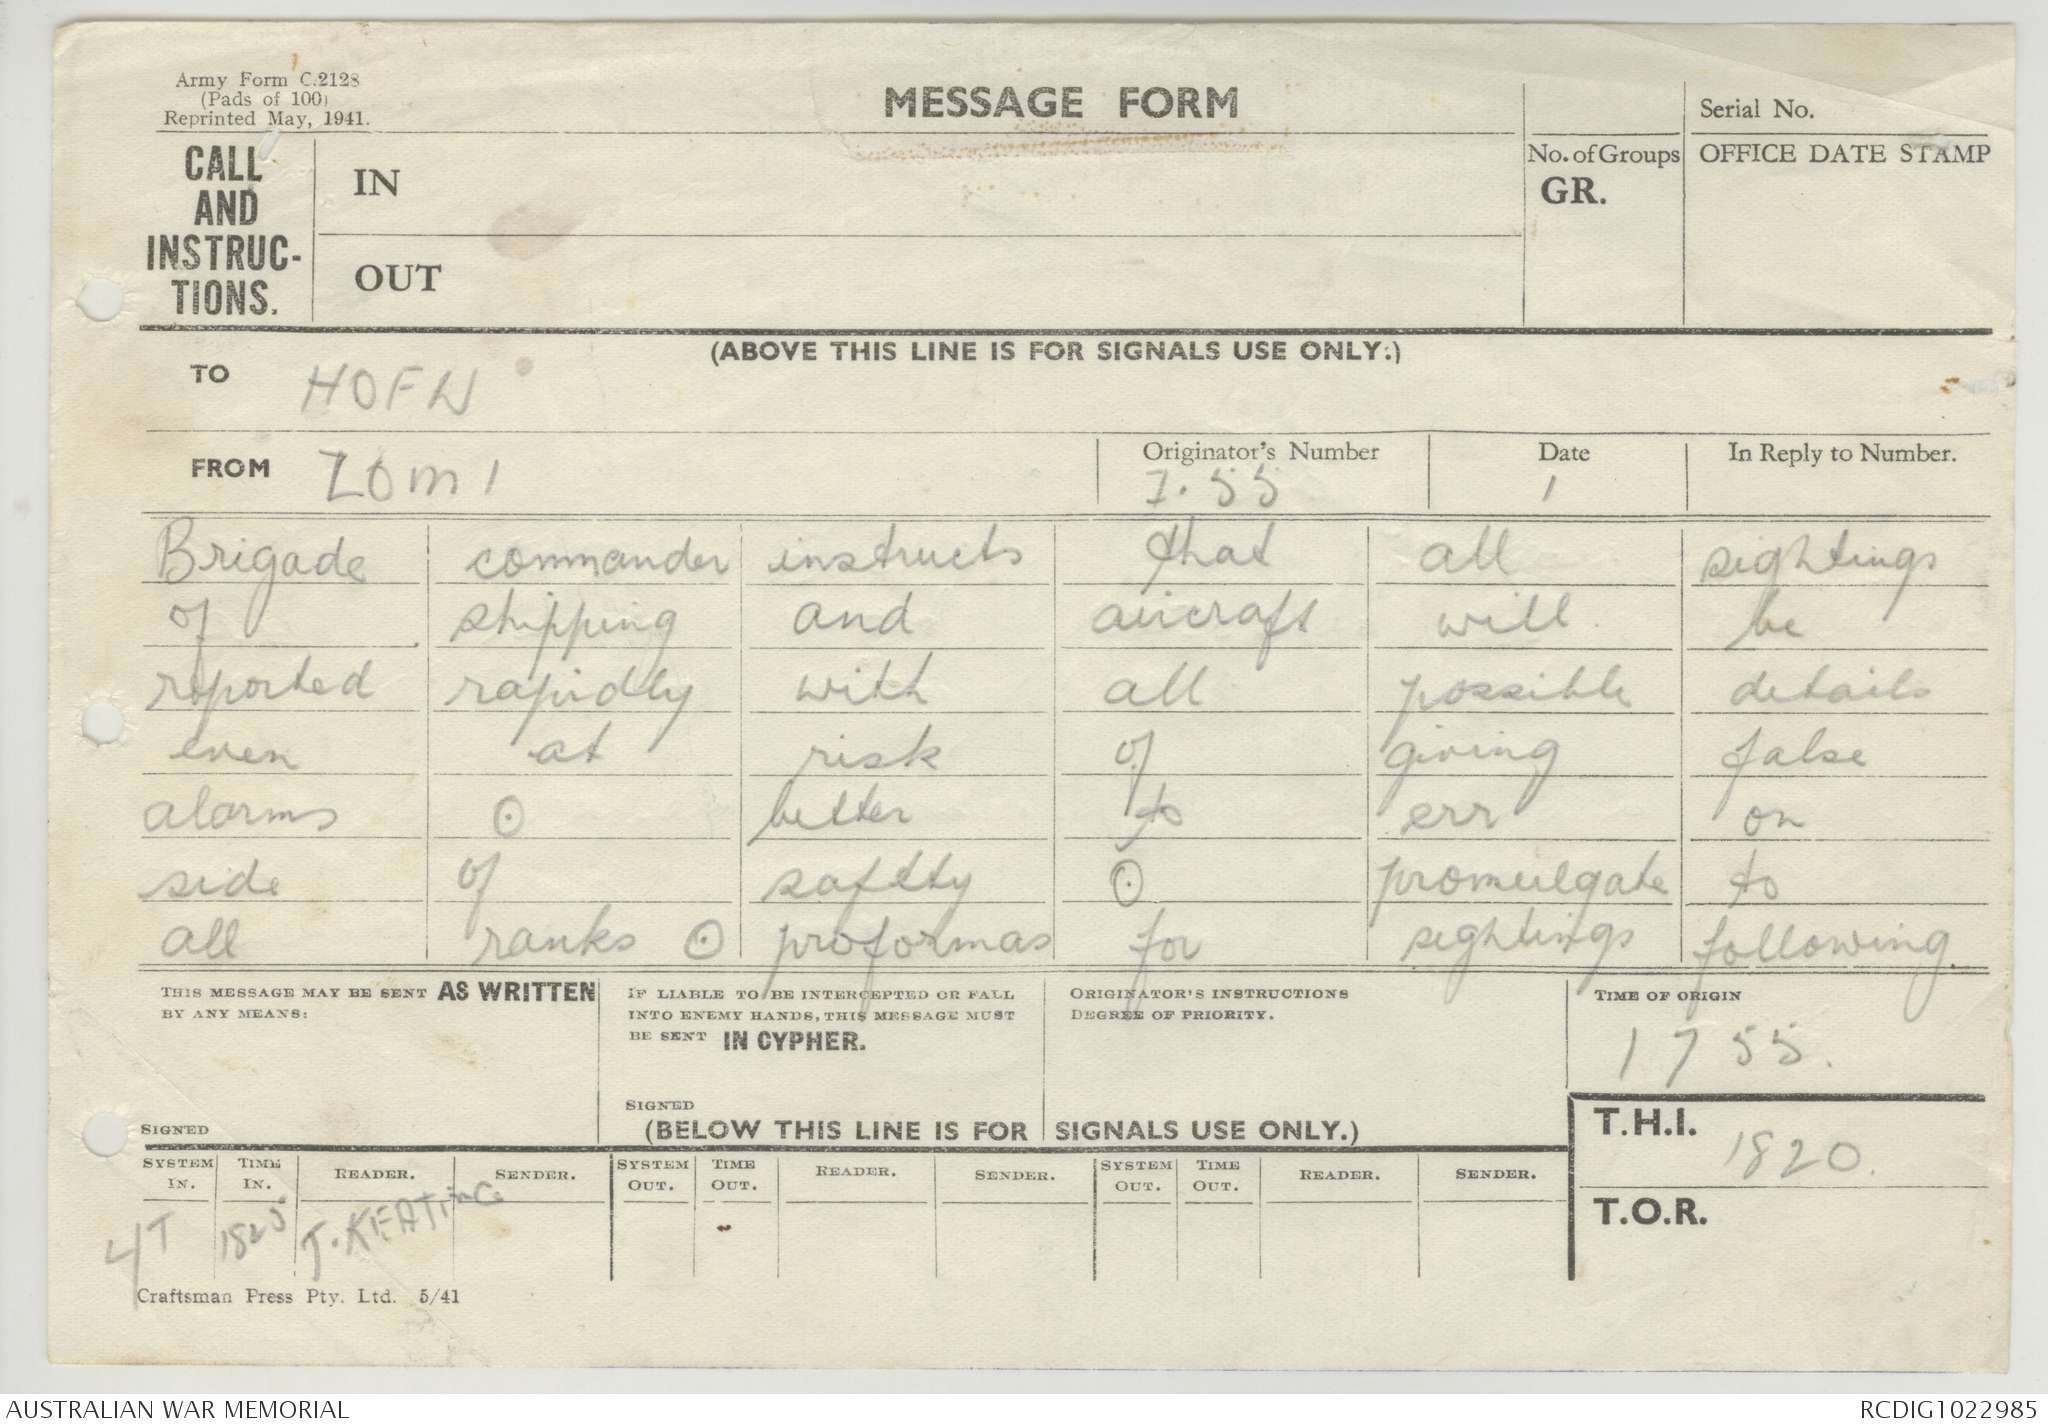 Army Form C.2128
(Pads of 100)
Reprinted May, 1941.
MESSAGE FORM
Serial No.
CALL
AND
INSTRUC-
TIONS.
IN
OUT
No. of Groups
GR.
OFFICE DATE STAMP
(ABOVE THIS LINE IS FOR SIGNALS USE ONLY.)
TO HOFN
FROM ZOM1
Originator's Number
I.55
Date
1
In Reply to Number.
Brigade commander instructs that all sightings
of shipping and aircraft will be
reported rapidly with all possible details
even at risk of giving false
alarms ⊙ better to err on
side of saftty ⊙ promulgate to
all ranks ⊙ proformas for sightings following.
THIS MESSAGE MAY BE SENT AS WRITTEN
BY ANY MEANS:
SIGNED
IF LIABLE TO BE INTERCEPTED OR FALL
INTO ENEMY HANDS, THIS MESSAGE MUST
BE SENT IN CYPHER.
SIGNED
ORIGINATOR'S INSTRUCTIONS
DEGREE OF PRIORITY.
TIME OF ORIGIN
1755.
(BELOW THIS LINE IS FOR SIGNALS USE ONLY.)
T.H.I. 1820.
T.O.R.
SYSTEM IN. TIME IN. READER. SENDER. SYSTEM OUT. TIME OUT. READER. SENDER. SYSTEM OUT. TIME OUT. READER. SENDER.
4T 1825 T. KEATING
Craftsman Press Pty. Ltd. 5/41
AUSTRALIAN WAR MEMORIAL
RCDIG1022985